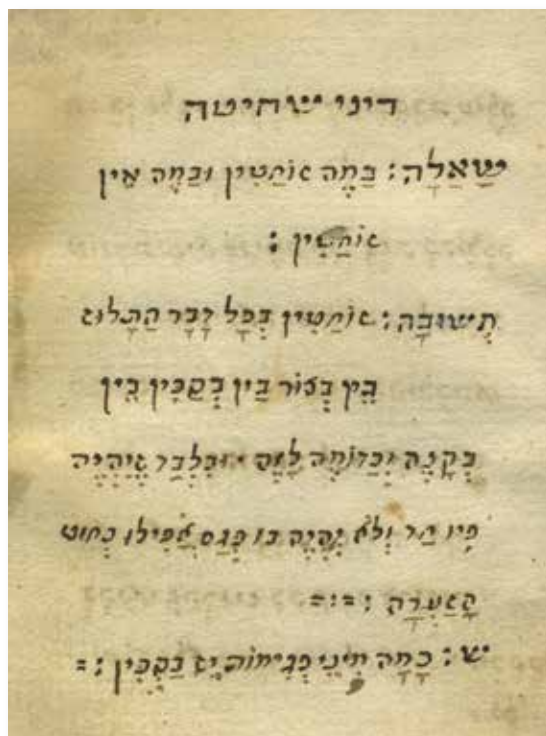 דיני שחיטה
שַׁאַלָה: בַּמֶה שׁוֹחֲטִין וּבַמֶה אֵין
שׁוֹחֲטִין :
תְשׁוּבָה: שׁוֹחֲטִין בְּכָל דָבָר הַתָלוּשׁ
בֵּין בְּצוֹר בֵּין בְּסַכִּין בֵּין
בְּקָנֶה וּכְדוֹמֶה לָזֶה וּבִלְבַד שֶׁיִהְיֶה
פִּיו חַד וְלֹא יִהְיֶה בּוֹ פְּגַם אֲפִילוּ כְּחוּט
הַשַׂעֲרָה :=:=
ש: כַּמָה מִינֵי פְּגִימוֹת יֵשׁ בְּסַכִּין :=